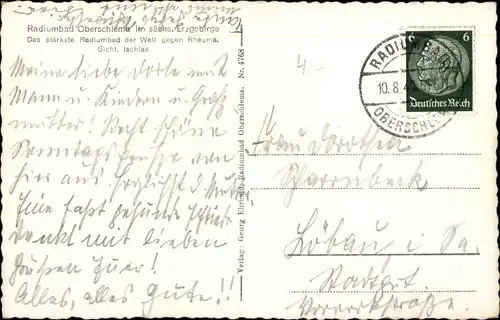 Radiumbad Oberschlema im sächs. Erzgebirge
Das stärkste Radiumbad der Welt gegen Rheuma,
Gicht, Ischias
Meine liebe Dorle mit
Mann u. Kindern u. Groß
mutter! Recht schöne
Sonntagsgrüße von
hier aus.
Eine fast gesunde
denkt mit lieben
Grüßen Euer!
Alles, alles Gute!!
Verlag: Georg Ehrhardt, Radiumbad Oberschlema. Nr. 4768
4.-
RADIUMBAD
10.8.4
OBERSCHLEMA
6 6
Deutsches Reich
Frau Dorothea
Löbau i Sa.
Stadtgut.
Vorwerkstraße.